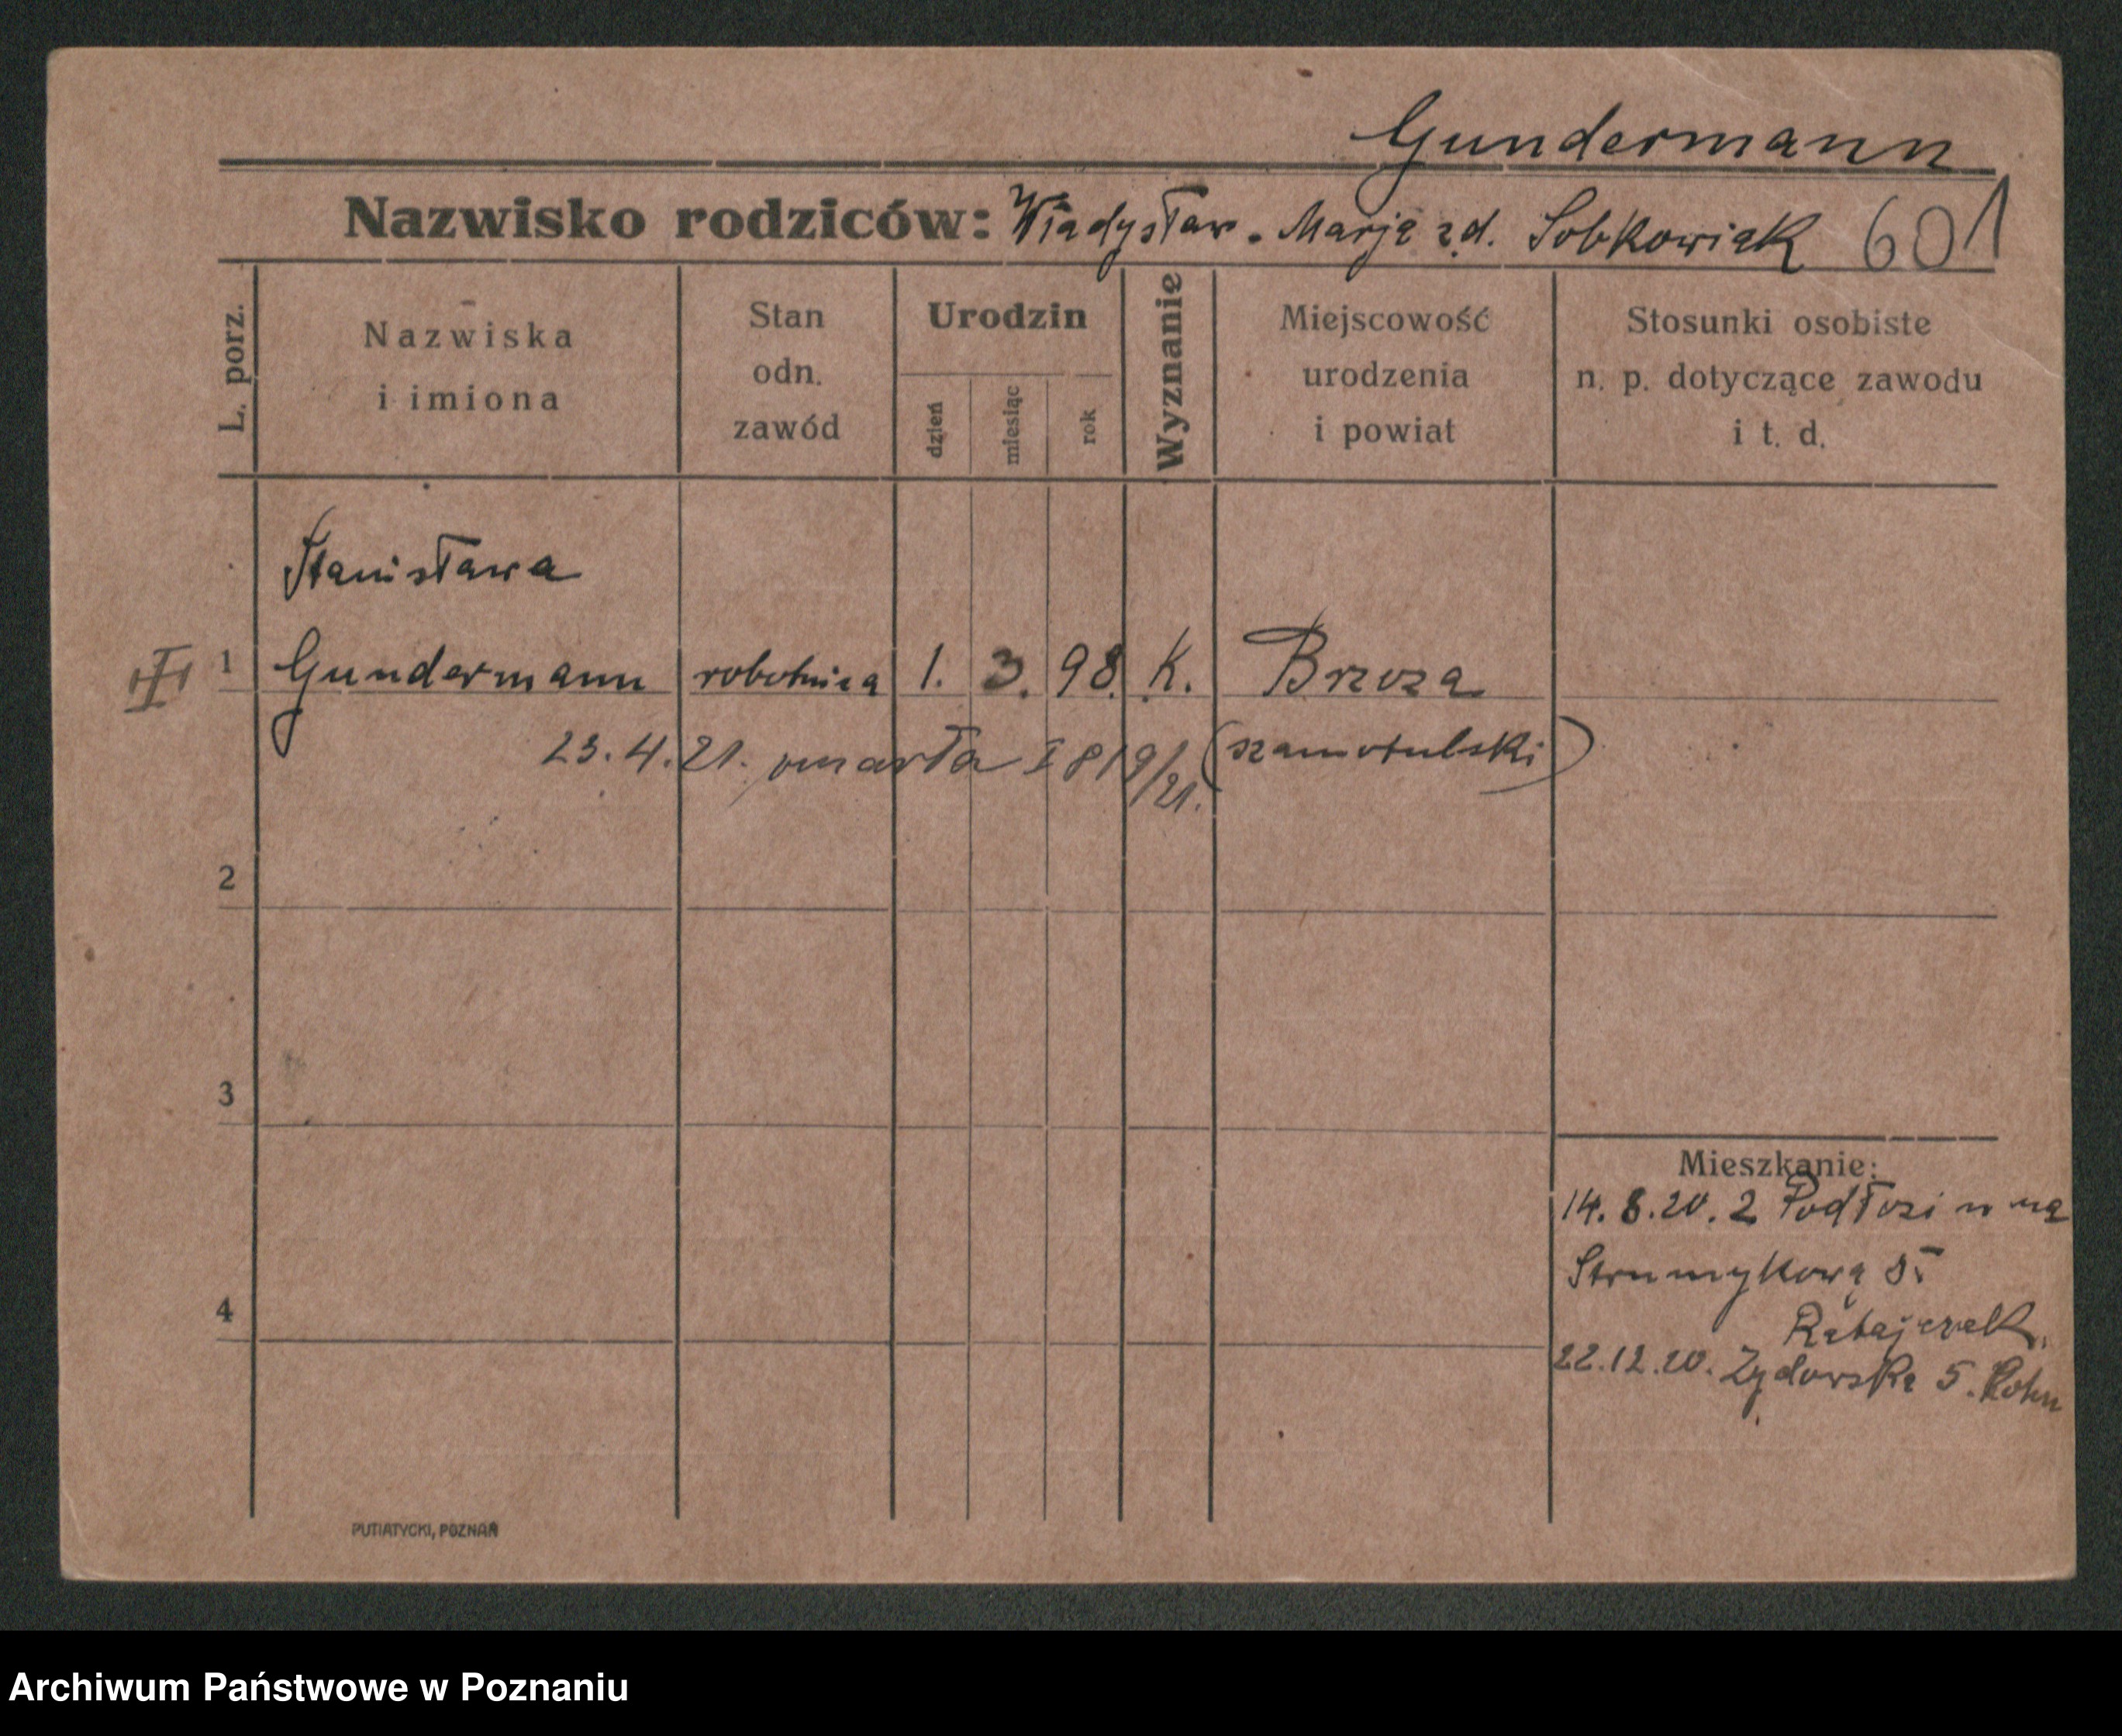 Gundermann
Nazwisko rodziców: Władysław - Marja z d. Sobkowiak 601
L. porz.
Nazwiska
i imiona
Stan
odn.
zawód
Urodzin
dzień
miesiąc
rok
Wyznanie
Miejscowość
urodzenia
i powiat
Stosunki osobiste
n. p. dotyczące zawodu
i t. d.
Stanisława
1 Gundermann robotnica 1. 3. 98. K. Brzoza
23.4.21. umarła I 819/21. (szamotulski)
2
3
4
Mieszkanie:
14.8.20. z Podłozin na
Strumykową 5.
Ratajczak.
22.12.20. Żydowska 5. Kohn
PUTIATYCKI, POZNAŃ
Archiwum Państwowe w Poznaniu